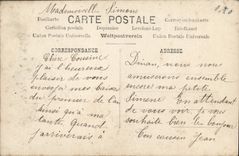 Mademoiselle Simone
CARTE POSTALE
Postkarte
Cartolina postale Dopisnice Levelező-Lap
Union Postale Universelle Weltpostverein Union Postale Universelle
CORRESPONDANCE
Chère Cousine
j'ai l'heureux
plaisir de vous
envoyer mes baisers
du premier de l'an
ainsi qu'à ma
tante. Quand
j'arriverais à
ADRESSE
Dinan nous nous
amuserons ensemble
encore ma petite
Simone En attendant
de vous voir je vous
souhaite bien le bonjour
Ton cousin Jean